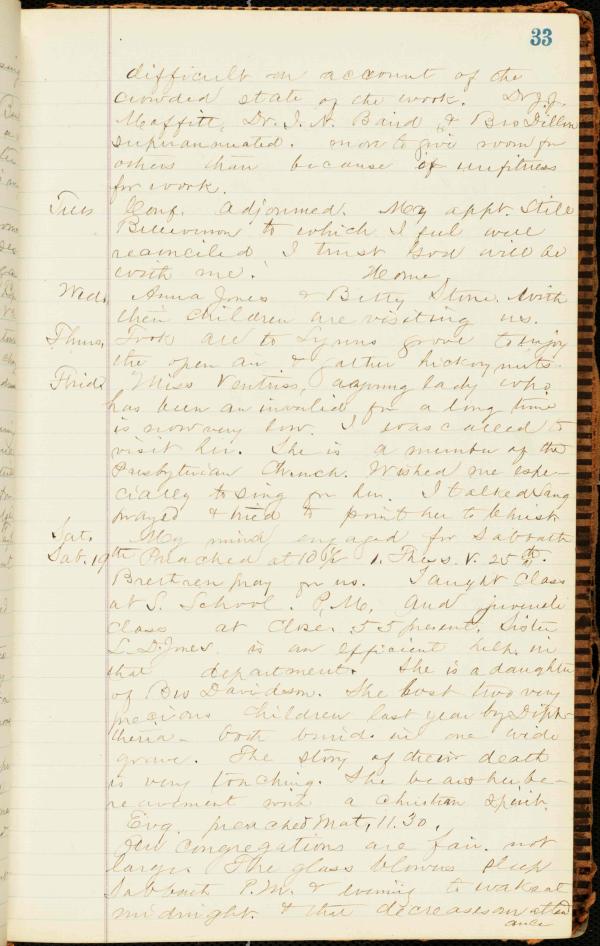 33
difficult on account of the
crowded state of the work. Dr. J. J.
Moffitt, Dr. I. N. Baird & Bro Dillon
superannuated. more to give room for
others than because of unfitness
for work.
Tues Conf. Adjourned. My appt. Still
to which I feel well
reconciled. I trust God will be
with me. Home
Wed. Anna Jones & Betty Stone with
their children are visiting us.
Thurs. Took all to Lynns grove to enjoy
the open air & gather hickory nuts.
Frid. Miss Ventriss, a young lady who
has been an invalid for a long time
is now very low. I was called to
visit her. She is a member of the
Presbyterian Church. Wished me espe-
cially to sing for her. I talked Sang
prayed & tried to point her to Christ
Sat. My mind engaged for Sabbath
Sab. 19th Preached at 10 1/2 1. Thess. V. 25th.
Brethren pray for us. Taught Class
at S. School. P.M. and juvenile
Class at close. 55 present. Sister
L. D. Jones is an efficient help in
that department. She is a daughter
of Bro Davidson. She lost two very
precious children last year by Diph-
theria - both buried in one wide
grave. The story of their death
is very touching. She bears her be-
reavement with a christian spirit.
Evg. preached Mat, 11.30.
Our congregations are fair. not
large. The glass blowers sleep
Sabbath P.M. & evening to wake at
midnight. & that decreases our attend
ance